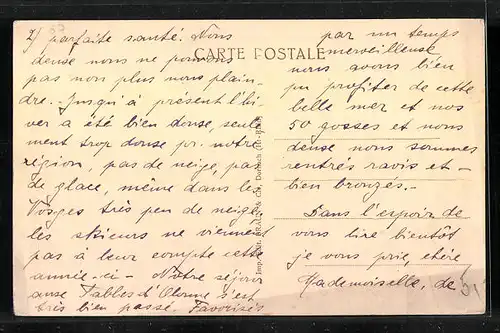 2) parfaite santé. Nous
deuse nous ne pouvons
pas non plus nous plain-
dre. Jusqu'à présent l'hi-
ver a été bien douse, seule
ment trop douse pr. notre
région, pas de neige, pas
de glace, même dans les
Vosges très peu de neige
les skieurs ne viennent
pas à leur compte cette
année-ci — Notre séjour
aux Sables d'Olonne s'est
très bien passé. Favorisés
CARTE POSTALE
par un temps
merveilleuse
nous avons bien
pu profiter de cette
belle mer et nos
50 gosses et nous
deuse nous sommes
rentrés ravis et —
bien bronzés. —
Dans l'espoir de
vous lire bientôt
je vous prie, chère
Mademoiselle, de